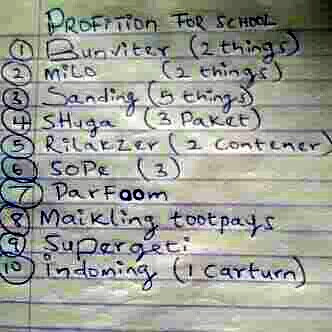 PROFITION FOR SCHOOL
1 Bunviter (2 things)
2 MiLO (2 things)
3 Sanding (5 things)
4 SHuga (3 Paket)
5 RiLakZer (2 contener)
6 SOPe (3)
7 ParFoom
8 Maikling tootpags
9 Supergeti
10 indoming (1 carturn)